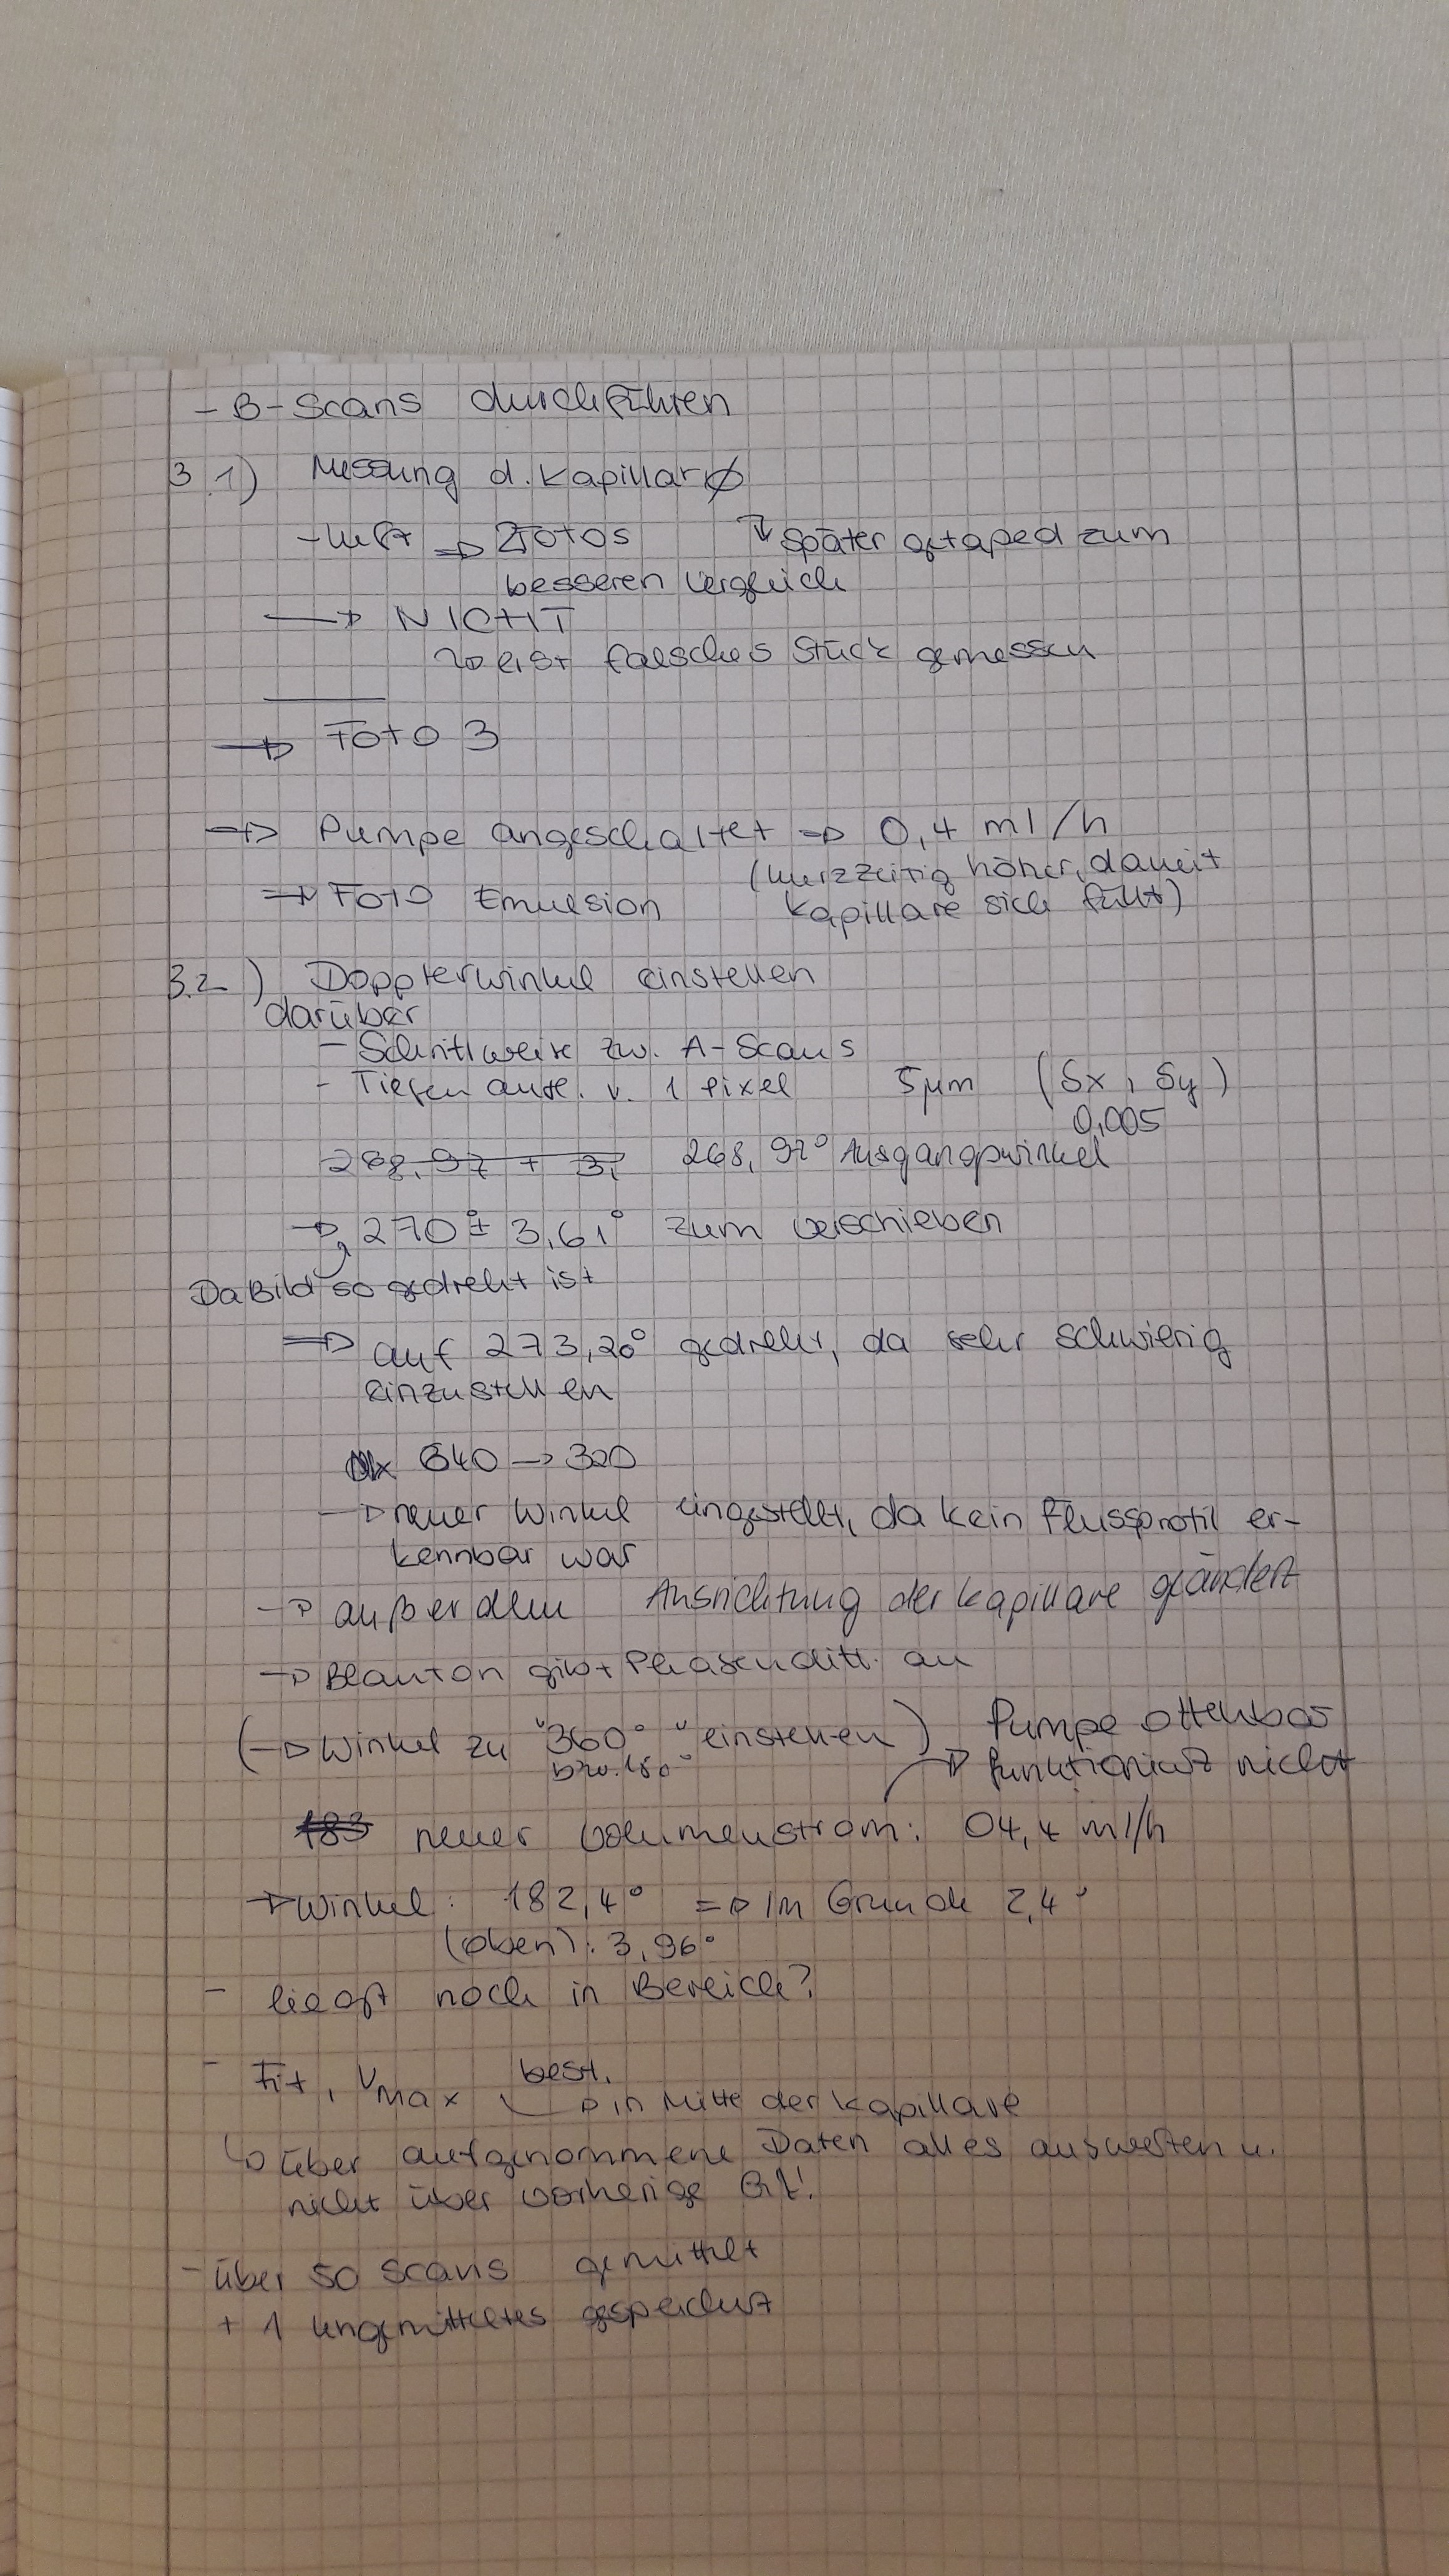 - B-Scans durchführen
3.1) Messung d. Kapillar Ø
- Luft ⇒ 2 Fotos ↳ später getaped zum
besseren Vergleich
→ NICHT
erst falsches Stück gemessen
→ Foto 3
→ Pumpe angeschaltet ⇒ 0,4 ml/h
(kurzzeitig höher, damit
⇒ Foto Emulsion Kapillare sich füllt)
3.2) Dopplerwinkel einstellen
darüber
- Schrittweite zw. A-Scans
- Tiefen aufl. v. 1 Pixel 5µm (Sx, Sy)
0,005
268,97° Ausgangswinkel
→ 270° ± 3,61° zum verschieben
Da Bild so gedreht ist
⇒ auf 273,20° gedreht, da sehr schwierig
einzustellen
640 → 320
→ neuer Winkel eingestellt, da kein Flussprofil er-
kennbar war
→ außerdem Ausrichtung der Kapillare geändert
→ Blauton gibt Phasendiff. an
(→ Winkel zu "360°" einstellen) Pumpe offenbar
bzw. 180° → funktioniert nicht
183 neuer Volumenstrom: 04,4 ml/h
→ Winkel: 182,4° ⇒ Im Grunde 2,4°
(oben): 3,96°
- liegt noch in Bereich?
- Fit, Vmax best.
↳ in Mitte der Kapillare
↳ über aufgenommene Daten alles auswerten u.
nicht über vorherige
- über 50 Scans gemittelt
+ 1 ungemitteltes gespeichert